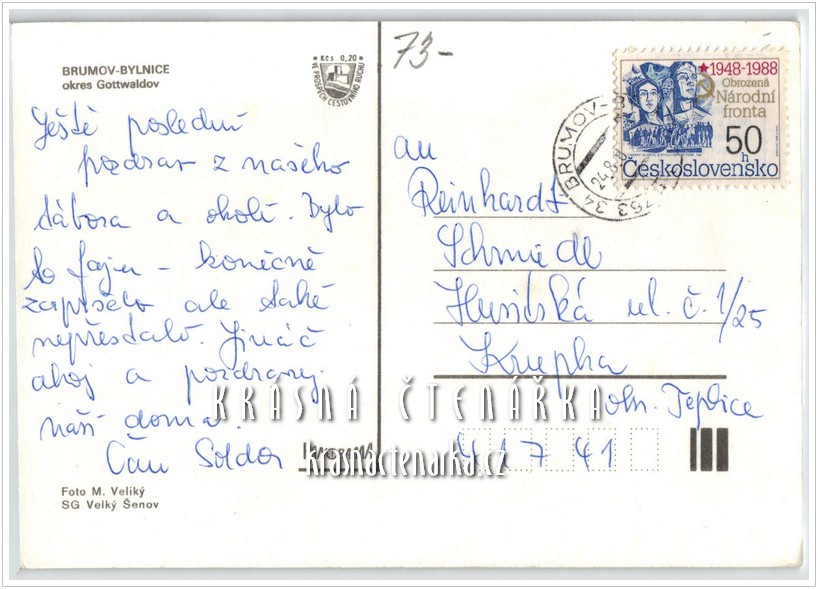 BRUMOV-BYLNICE
okres Gottwaldov
Kčs 0,20
VE PROSPĚCH CESTOVNÍHO RUCHU
Ještě poslední
pozdrav z našeho
tábora a okolí. Bylo
to fajn – konečně
zapršelo ale také
nepřestalo. Jináč
ahoj a pozdravuj
naši doma.
Čau
Foto M. Veliký
SG Velký Šenov
73-
1948-1988
Obrozená
Národní
fronta
50 h
Československo
BRUMOV-
24.8.
753 34
an
Reinhardt
Schmiedl
Husitská ul. č. 1/25
Krupka
okr. Teplice
41741
KRÁSNÁ ČTENÁŘKA
krasnactenarka.cz